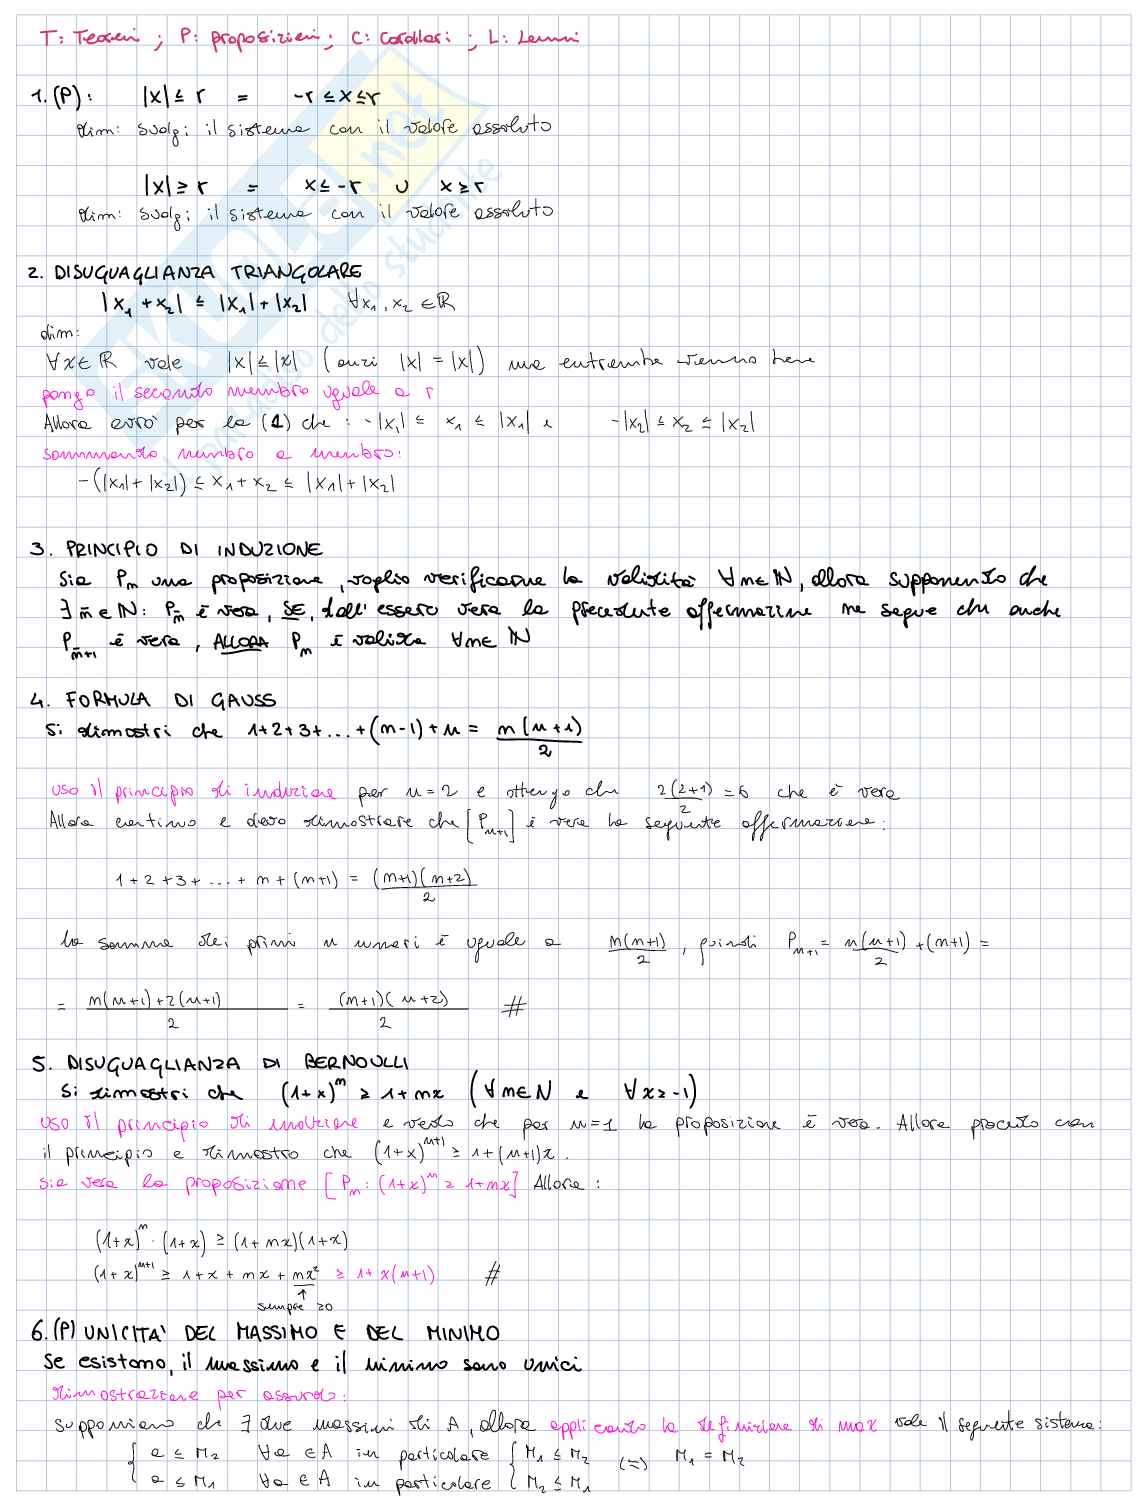 T: Teoremi ; P: proposizioni ; C: Corollari ; L: Lemmi
1.(P): |x| ≤ r = -r ≤ x ≤ r
dim: svolgi il sistema con il valore assoluto
|x| ≥ r = x ≤ -r ∪ x ≥ r
dim: svolgi il sistema con il valore assoluto
2. DISUGUAGLIANZA TRIANGOLARE
|x₁ + x₂| ≤ |x₁| + |x₂| ∀x₁, x₂ ∈ ℝ
dim:
∀x ∈ ℝ vale |x| ≤ |x| (anzi |x| = |x|) ma entrambe vanno bene
pongo il secondo membro uguale a r
Allora avrò per la (1) che : -|x₁| ≤ x₁ ≤ |x₁| e -|x₂| ≤ x₂ ≤ |x₂|
sommando membro a membro:
-(|x₁| + |x₂|) ≤ x₁ + x₂ ≤ |x₁| + |x₂|
3. PRINCIPIO DI INDUZIONE
Sia Pₙ una proposizione, voglio verificarne la validità ∀n∈ℕ, allora supponendo che
∃ n̄ ∈ ℕ: Pn̄ è vera, SE, dall'essere vera la precedente affermazione ne segue che anche
Pn̄+1 è vera, ALLORA Pₙ è valida ∀n∈ ℕ
4. FORMULA DI GAUSS
Si dimostri che 1+2+3+...+(n-1)+n = n(n+1)/2
uso il principio di induzione per n=2 e ottengo che 2(2+1)/2 = 6 che è vera
Allora continuo e devo dimostrare che [Pₙ₊₁] è vera la seguente affermazione:
1+2+3+...+n+(n+1) = (n+1)(n+2)/2
la somma dei primi n numeri è uguale a n(n+1)/2, quindi Pₙ₊₁ = n(n+1)/2 + (n+1) =
= n(n+1)+2(n+1)/2 = (n+1)(n+2)/2 #
5. DISUGUAGLIANZA DI BERNOULLI
Si dimostri che (1+x)ⁿ ≥ 1+nx (∀n∈N e ∀x≥-1)
uso il principio di induzione e vedo che per n=1 la proposizione è vera. Allora procedo con
il principio e dimostro che (1+x)ⁿ⁺¹ ≥ 1+(n+1)x.
Sia vera la proposizione [Pₙ: (1+x)ⁿ ≥ 1+nx] Allora:
(1+x)ⁿ · (1+x) ≥ (1+nx)(1+x)
(1+x)ⁿ⁺¹ ≥ 1+x+nx+nx² ≥ 1+x(n+1) #
↑
sempre ≥0
6.(P) UNICITA' DEL MASSIMO E DEL MINIMO
Se esistono, il massimo e il minimo sono unici
dimostrazione per assurdo:
supponiamo che ∃ due massimi di A, allora applicando la definizione di max vale il seguente sistema:
{ a ≤ M₂ ∀a ∈ A in particolare { M₁ ≤ M₂ (=) M₁ = M₂
a ≤ M₁ ∀a ∈ A in particolare M₂ ≤ M₁
SKUOLA.net
il paradiso dello studente